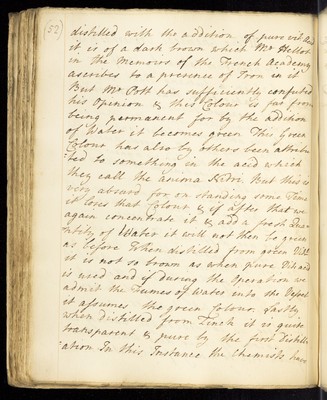 52
distilled with the addition of pure vit: Acid
it is of a dark brown which Mr Hellot
in the Memoirs of the French Academy
ascribes to a presence of Iron in it
But Mr Pott has sufficiently confuted
his Opinion & this Colour is far from
being permanent for by the addition
of Water it becomes green This Green
Colour has also by others been attribu
:ted to something in the acid which
they call the anima But this is
very absurd for on standing some Time
it loses that Colour & if after that we
again concentrate it & add a fresh Quan
:tity of Water it will not then be green
as before When distilled from green Vitl:
it is not so brown as when pure Vit: acid
is used and if during the operation we
admit the Fumes of Water into the Vessel
it assumes the green Colour. Lastly
when distilled from Zinck it is quite
transparent & pure by the first distill:
:ation In this Instance the Chemists have